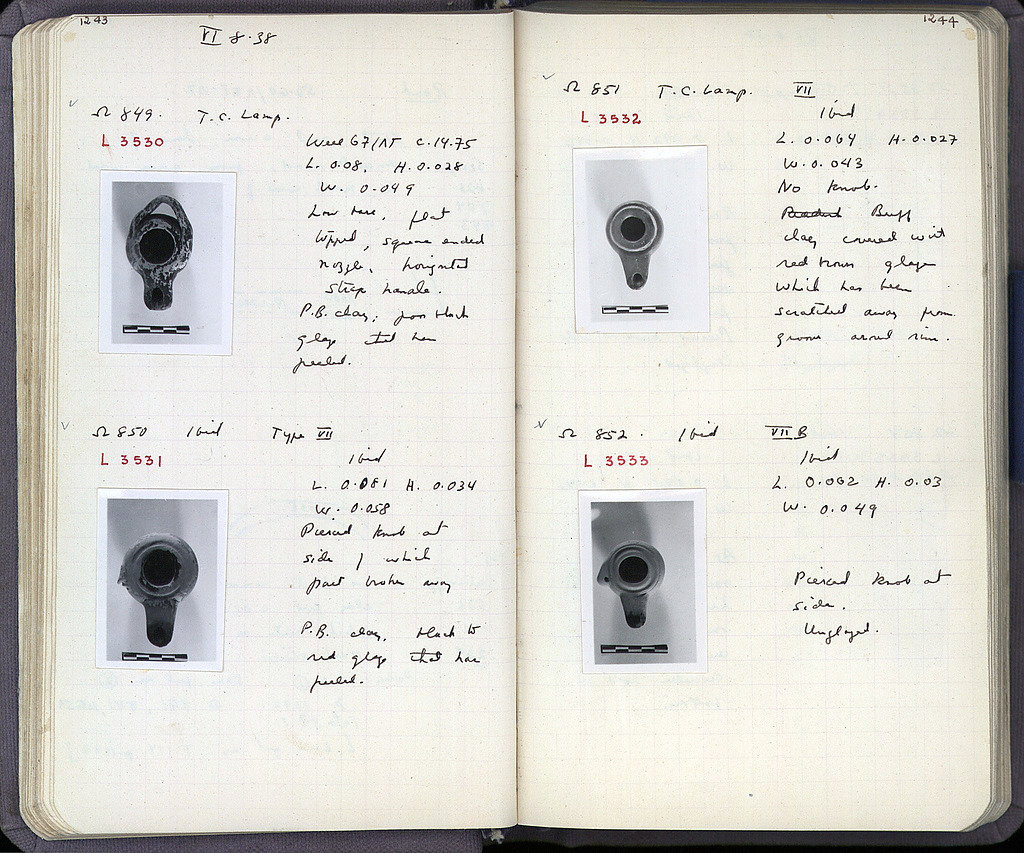 1243
VI 8.38
Ω 849. T.C. Lamp.
L 3530
Well 67/ΛΓ C. 14.75
L. 0.08. H. 0.028
W. 0.049
Low base, flat
lipped, square ended
nozzle, horizontal
strap handle.
P.B. clay; poor black
glaze that has
peeled.
Ω 850 Ibid Type VII
L 3531
Ibid
L. 0.081 H. 0.034
W. 0.058
Pierced knob at
side / which
part broken away
P.B. clay, black to
red glaze that has
peeled.
1244
Ω 851 T.C. Lamp. VII
L 3532
Ibid
L. 0.064 H. 0.027
W. 0.043
No knob.
Buff
clay covered with
red brown glaze
which has been
scratched away from
groove around rim.
Ω 852. Ibid VII B
L 3533
Ibid
L. 0.062 H. 0.03
W. 0.049
Pierced knob at
side.
Unglazed.